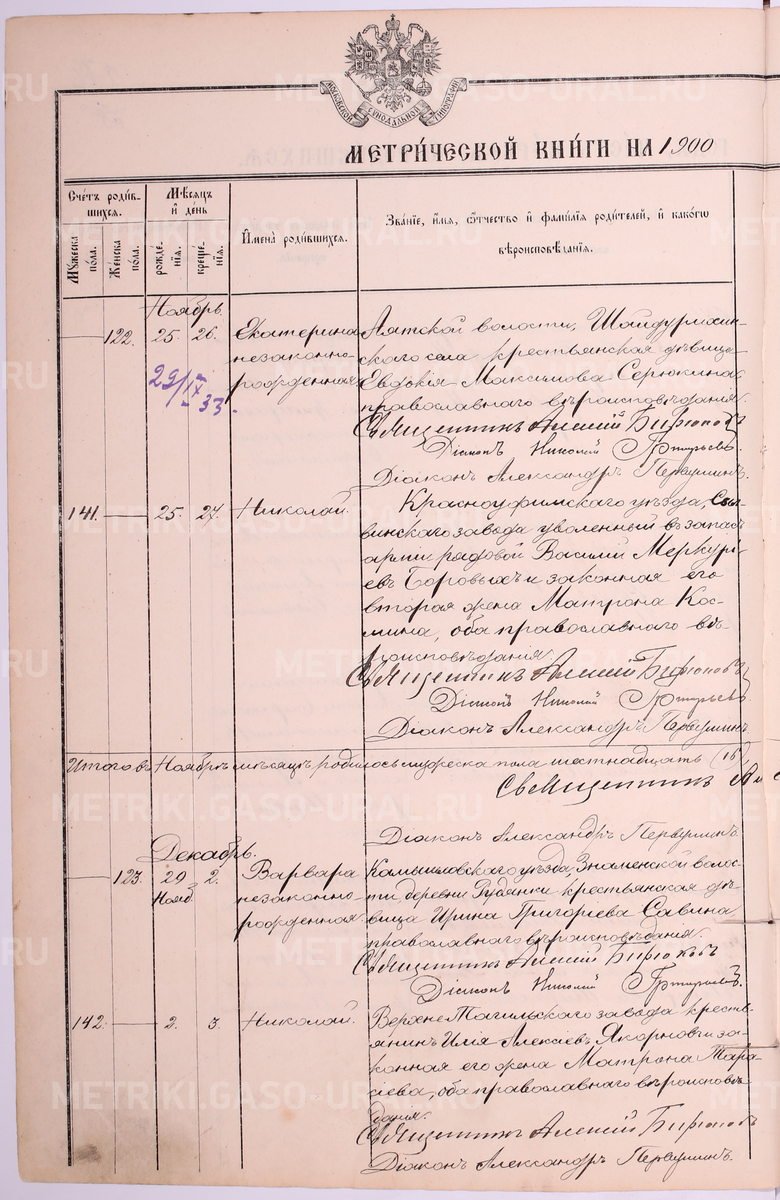 МОСКОВСКОЙ СѴНОДАЛЬНОЙ ТИПОГРАФІИ
МЕТРИ́ЧЕСКОЙ КНИ́ГИ НА 1900
Счетъ роди́вшихся.
Му́жеска по́ла.
Же́нска по́ла.
Мѣсяцъ и день
рожде́нїя.
креще́нїя.
Имена̀ роди́вшихся.
Зва́нїе, и́мя, ѻ́тчество и фами́лїя роди́телей, и како́гѡ
вѣроисповѣ́данїя.
Ноябрь.
122. 25. 26. Екатерина Аятской волости, Шайдурихин-
незаконно- скаго села крестьянская дѣвица
рожденная Евдокія Максимова Серюкина
29/IX 33.
православнаго вѣроисповѣданія.
Священникъ Алексій Бирюковъ
Діаконъ Николай
Діаконъ Александръ Первушинъ.
141. 25. 27. Николай. Красноуфимскаго уѣзда, Сы-
винскаго завода уволенный въ запасъ
арміи рядовой Василій Меркурі-
евъ Боровыхъ и законная его
вторая жена Матрона Кос-
мина, оба православнаго вѣ-
роисповѣданія.
Священникъ Алексій Бирюковъ
Діаконъ Николай
Діаконъ Александръ Первушинъ
Итого въ Ноябрѣ мѣсяцѣ родилось мужеска пола шестнадцать (16)
Священникъ Ал
Діаконъ Александръ Первушинъ.
Декабрь.
123. 29 Нояб. 2. Варвара Камышловскаго уѣзда, Знаменской волос-
незаконно- ти деревни Рудянки крестьянская дѣ-
рожденная. вица Ирина Григорьева Савина,
православнаго вѣроисповѣданія.
Священникъ Алексій Бирюковъ
Діаконъ Николай
142. 2. 3. Николай. Верхне-Тагильскаго завода кресть-
янинъ Илія Алексіевъ Якорновъ и за-
конная его жена Матрона Тара-
сіева, оба православнаго вѣроисповѣ-
данія.
Священникъ Алексій Бирюковъ
Діаконъ Александръ Первушинъ.
METRIKI.GASO-URAL.RU